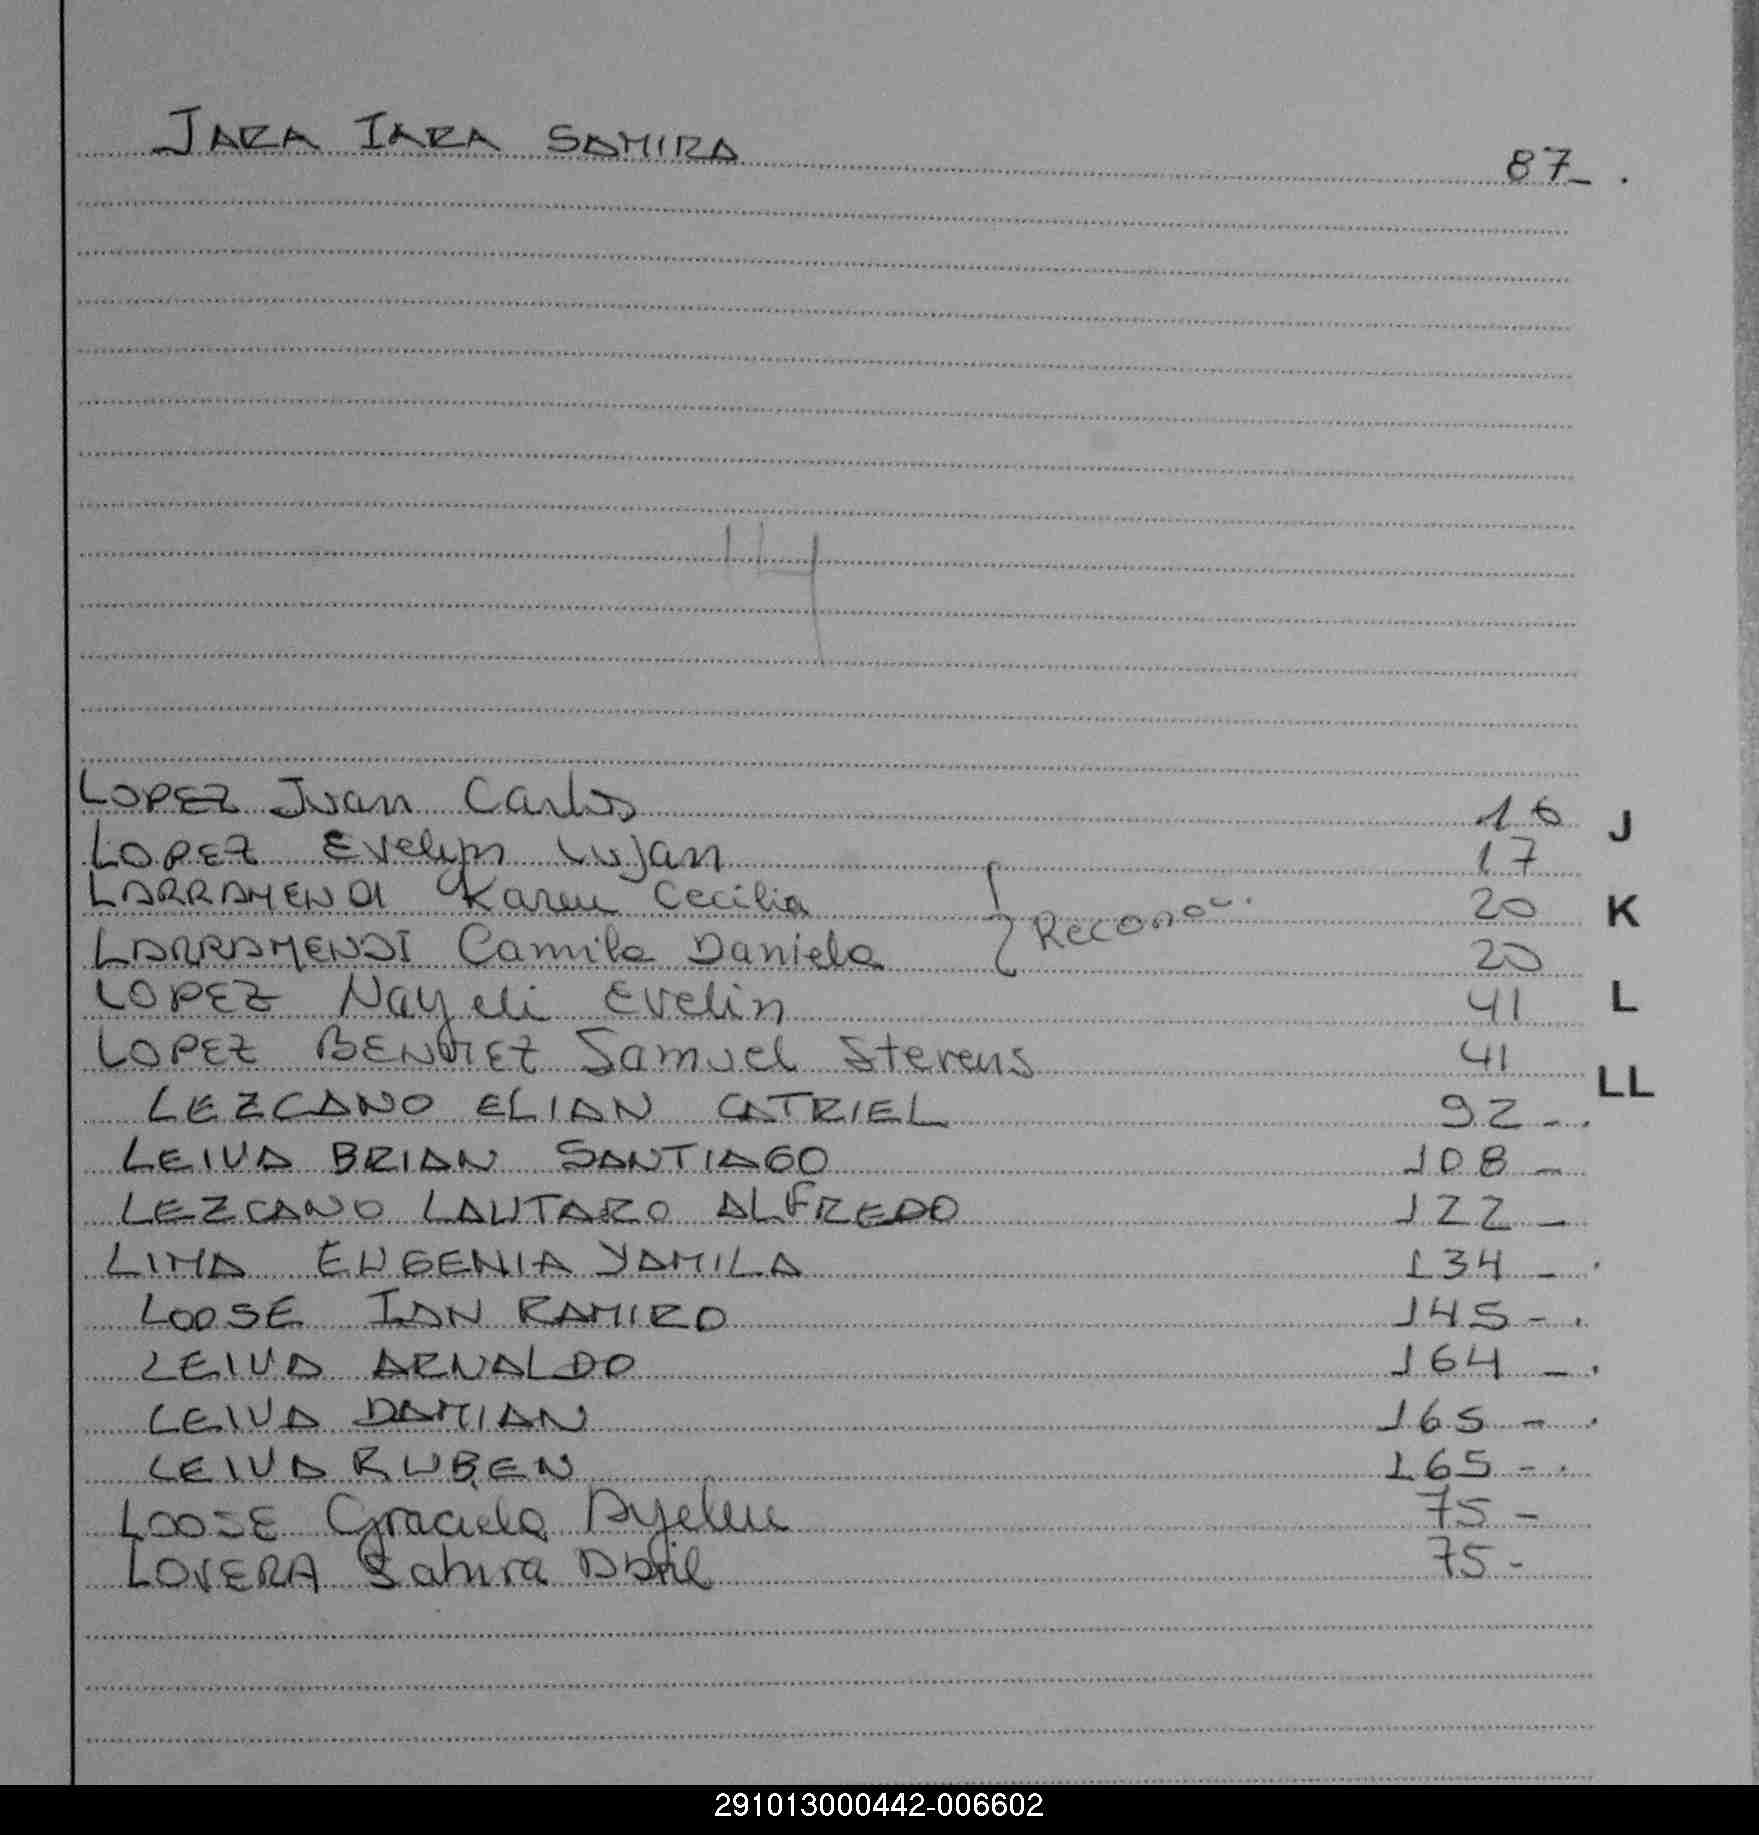 JARA IARA SAMIRA 87-.
14
LOPEZ Juan Carlos 16 J
LOPEZ Evelyn Lujan 17
LARRAMENDI Karen Cecilia 20 K
LARRAMENDI Camila Daniela 20
LOPEZ Nayeli Evelin 41 L
LOPEZ BENITEZ Samuel Stevens 41
LL
LEZCANO ELIAN CATRIEL 92-.
LEIVA BRIAN SANTIAGO 108-
LEZCANO LAUTARO ALFREDO 122-
LIMA EUGENIA YAMILA 134-.
LOOSE IAN RAMIRO 145-.
LEIVA ARNALDO 164-.
LEIVA DAMIAN 165-.
LEIVA RUBEN 165-.
LOOSE Graciela Ayelen 75-
LOVERA Abril 75-
291013000442-006602